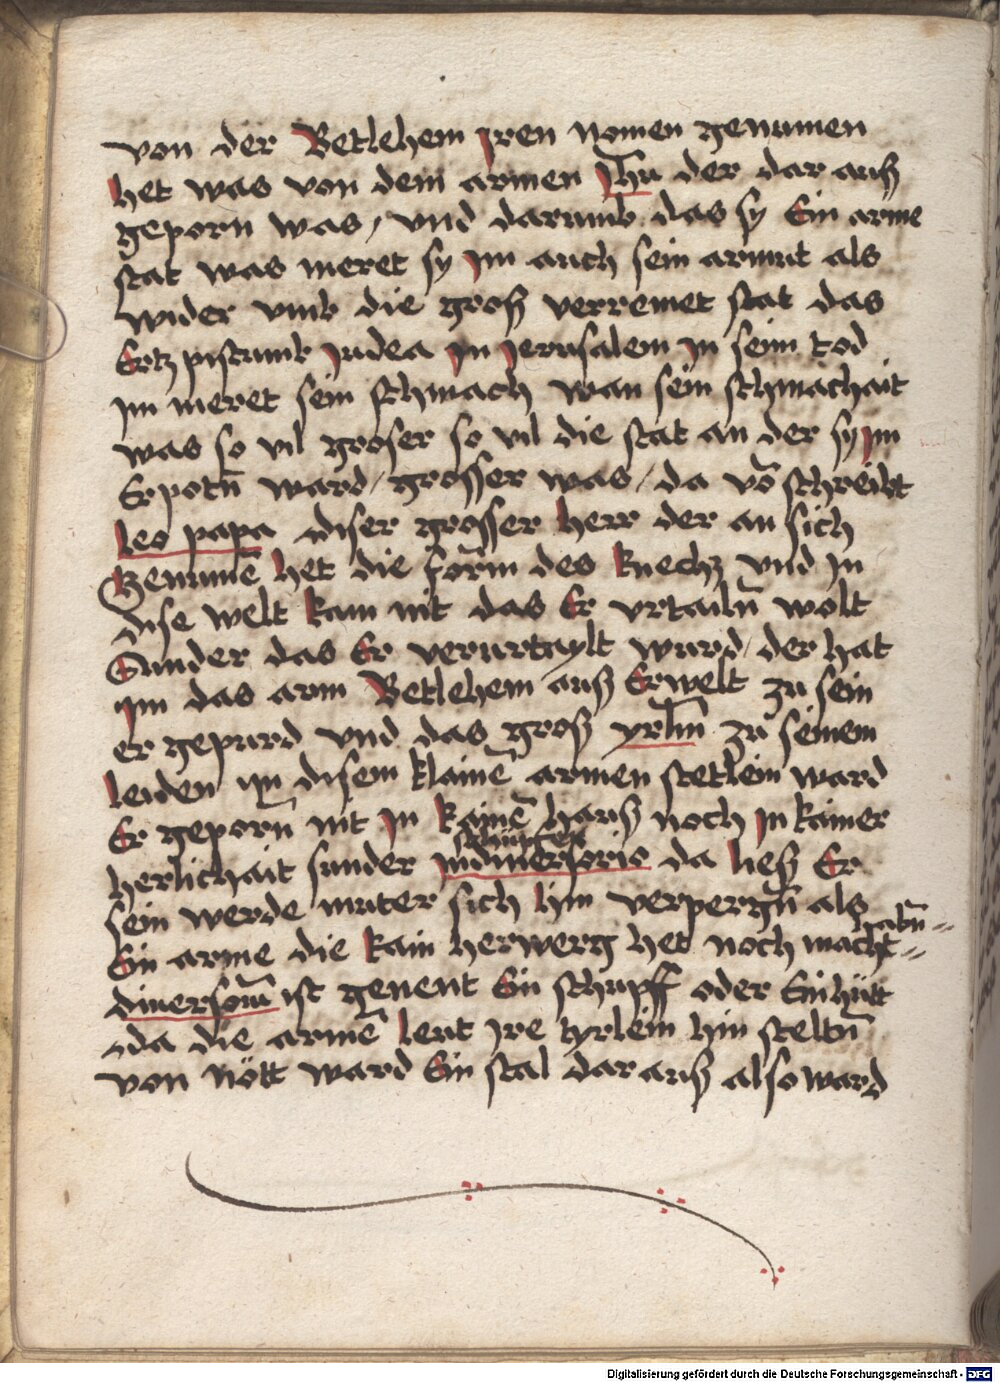 von der Betlehem jren nomen genumen
het was von dem armen Jhu der dar auß
geporn was / vnd darumb das sy Ein arme
stat was meret sy jm auch sein armut als
wider vmb die groß verremet stat das
Ertzpistumb Judea in Jerusalem in seim tod
jm meret sein schmach wan sein schmachait
was so vil groser so vil die stat an der sy jm
Erpotn̄ ward / grosser was / da vō schreibt
Leo papa diser grosser herr der an sich
genumē het die form des knechz vnd jn
dise welt kam nit das Er vrtailn̄ wolt
Sunder das Er verurtaylt wurd / der hat
jm das arm Betlehem auß Erwelt zu sein
er gepurd vnd das groß yrlm̄ zu seinem
Leiden in disem klainē armen stetlein ward
Er geporn nit in kainē hauß noch in kainer
herlichait sunder in diuersorio da ließ Er
sein werde muter sich hin verpergn̄ als
Ein arme die kain herwerg het noch macht habn̄
diuersoriū ist genent Ein schupff oder Ein hütt
da die armē leut jre tyrlein hin steltn̄
von nött ward Ein stal dar auß also ward
Digitalisierung gefördert durch die Deutsche Forschungsgemeinschaft - DFG